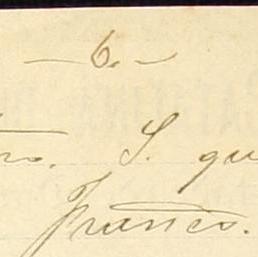 — 6. —
S. qu
Franco.